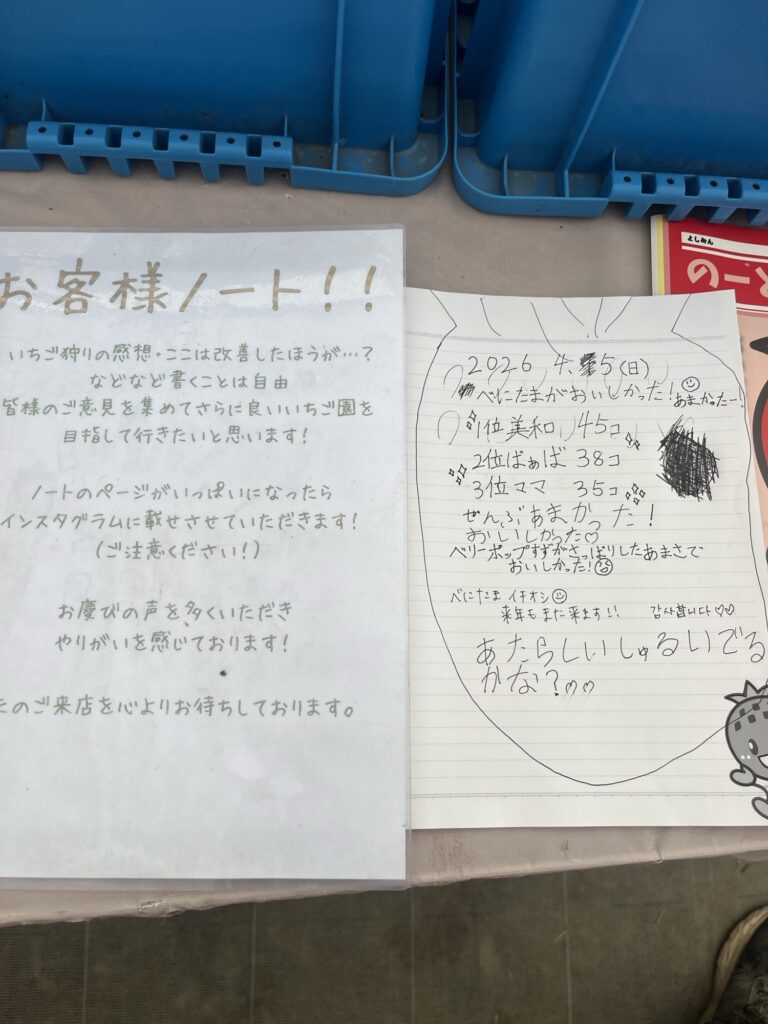 お客様ノート！！
いちご狩りの感想・ここは改善したほうが…？
などなど書くことは自由
皆様のご意見を集めてさらに良いいちご園を
目指して行きたいと思います！
ノートのページがいっぱいになったら
インスタグラムに載せさせていただきます！
（ご注意ください！）
お慶びの声を多くいただき
やりがいを感じております！
のご来店を心よりお待ちしております。
よしみん
のーと
2026 4. 5(日)
べにたまがおいしかった！あまかったー！
1位美和 45コ
2位ばぁば 38コ
3位ママ 35コ
ぜんぶあまかった！
おいしかった♡
ベリーポップすずがさっぱりしたあまさで
おいしかった！
べにたま イチオシ
来年もまた来ます!! 감사합니다♡♡
あたらしいしゅるいでる
かな？♡♡